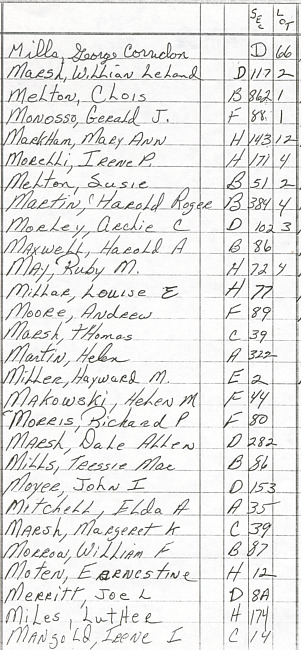 SEC LOT
Mills, George Corridon D 66
Marsh, Willian Leland D 117 2
Melton, Clois B 862 1
Monosso, Gerald J. F 88 1
Markham, Mary Ann H 143 12
Morelli, Irene P. H 171 4
Melton, Susie B 51 2
Martin, Harold Roger B 384 4
Morley, Archie C D 102 3
Maxwell, Harold A B 86
May, Ruby M. H 72 4
Millar, Louise E H 77
Moore, Andrew F 89
Marsh, Thomas C 39
Martin, Helen A 322
Miller, Hayward M. E 2
Makowski, Helen M F 44
Morris, Richard P F 80
Marsh, Dale Allen D 282
Mills, Teressie Mae B 86
Moyer, John I D 153
Mitchell, Elda A A 35
Marsh, Margeret K C 39
Morrow, William F B 87
Moten, Earnestine H 12
Merritt, Joe L D 8A
Miles, Luther H 174
Mangold, Irene I C 14